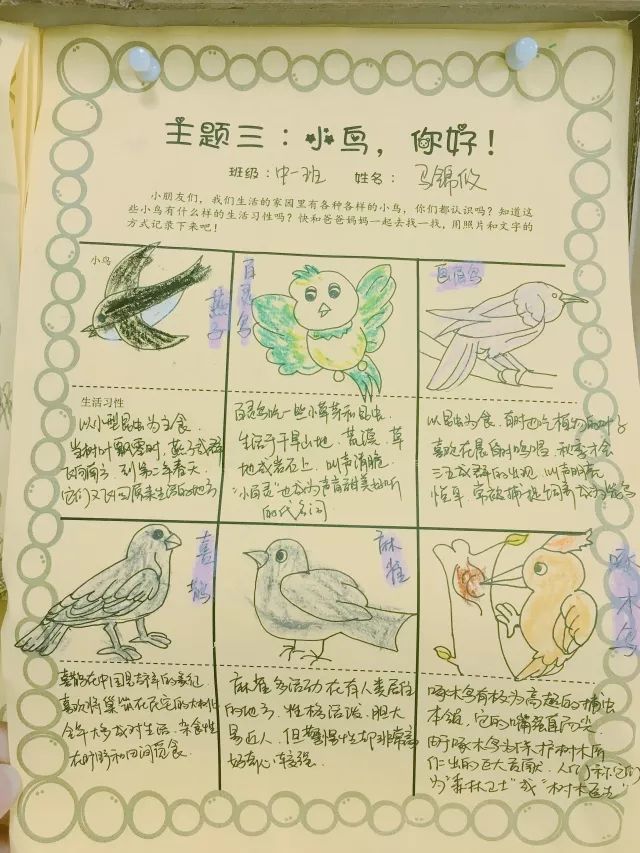 主题三：小鸟，你好！
班级：中一班 姓名：马锦攸
小朋友们，我们生活的家园里有各种各样的小鸟，你们都认识吗？知道这
些小鸟有什么样的生活习性吗？快和爸爸妈妈一起去找一找，用照片和文字的
方式记录下来吧！
小鸟
燕子
百灵鸟
画眉鸟
生活习性
以小型昆虫为主食．
当树叶飘零时，燕子成群
飞向南方．到第二年春天．
它们又飞回原来生活的地方
百灵鸟吃一些小草芽和昆虫
生活于干旱山地、荒漠、草
地或岩石上，叫声清脆
"小百灵"也成为声音甜美好听
的代名词
以昆虫为食．有时也吃植物的叶子
喜欢在晨间鸣唱．秋季才会
三五成群的出现．叫声嘹亮
常被捕捉饲养成为笼鸟
喜鹊
麻雀
啄木鸟
喜鹊在中国是吉祥的象征
喜欢将巢筑在民宅的大树上
全年大多成对生活．杂食性
在旷野和田间觅食．
麻雀多活动在有人类居住
的地方．性格活泼．胆大
易近人．但警惕性却非常高
好奇心较强．
啄木鸟有极为高超的捕虫
本领，它的嘴强直而尖
由于啄木鸟为保护树木所
作出的巨大贡献．人们称它们
为"森林卫士"或"树木医生"